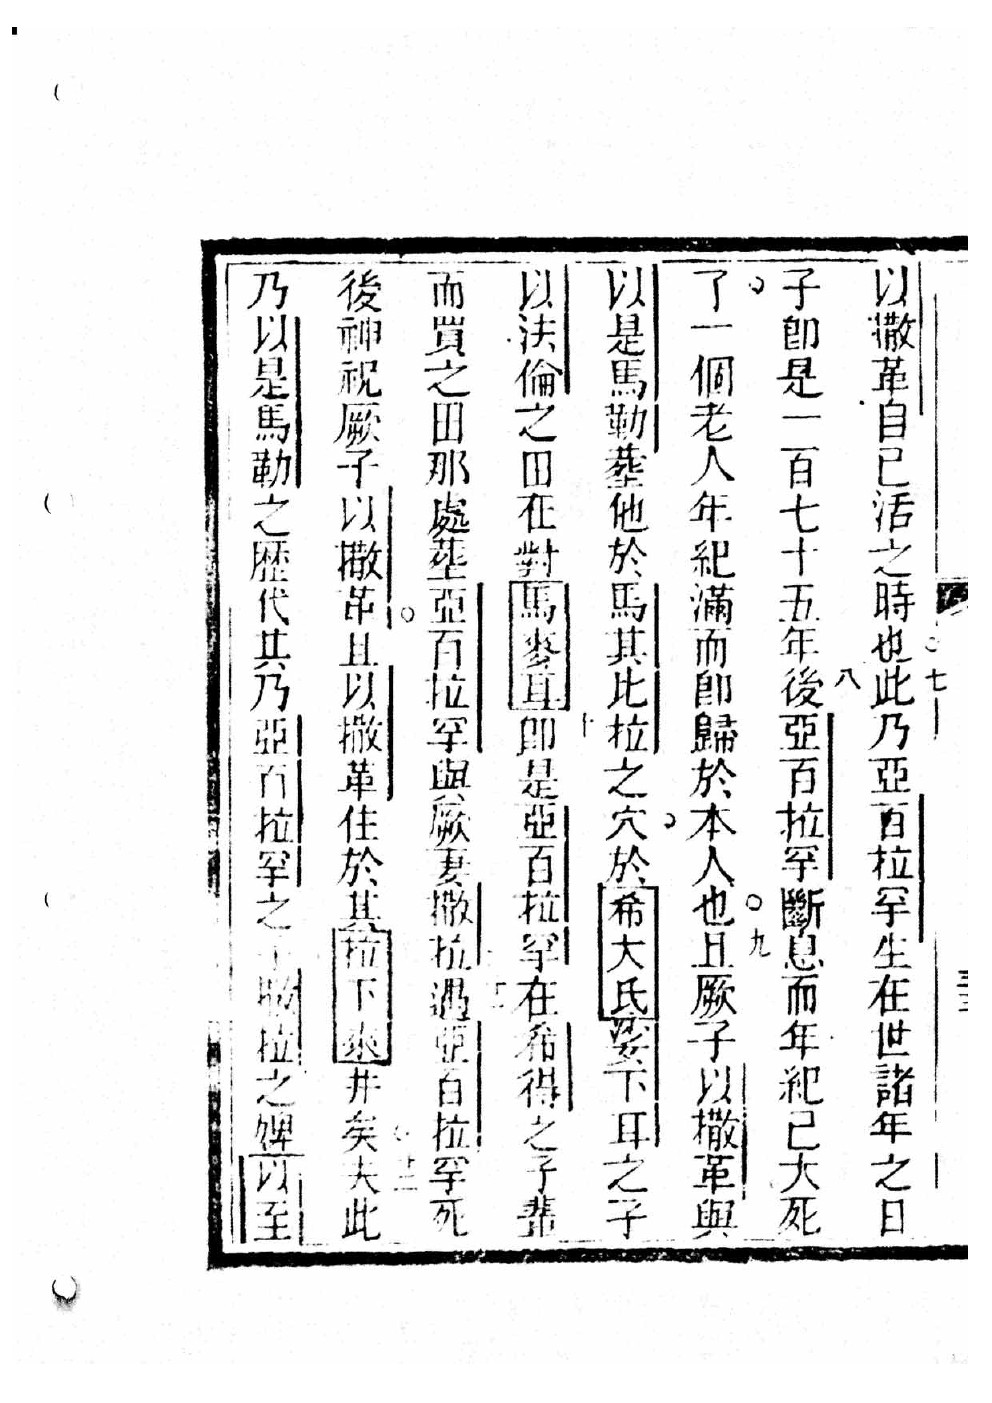 以撒革自己活之時也七此乃亞百拉罕生在世諸年之日
子即是一百七十五年後八亞百拉罕斷息而年紀已大死
了一個老人年紀滿而即歸於本人也九且厥子以撒革與
以是馬勒葬他於馬其比拉之穴於希大氏娑下耳之子
以法倫之田在對馬麥耳十即是亞百拉罕在希得之子輩
而買之田那處葬亞百拉罕與厥妻撒拉過亞百拉罕死
後神祝厥子以撒革且以撒革住於其拉下來井矣十二夫此
乃以是馬勒之歷代其乃亞百拉罕之子撒拉之婢以至